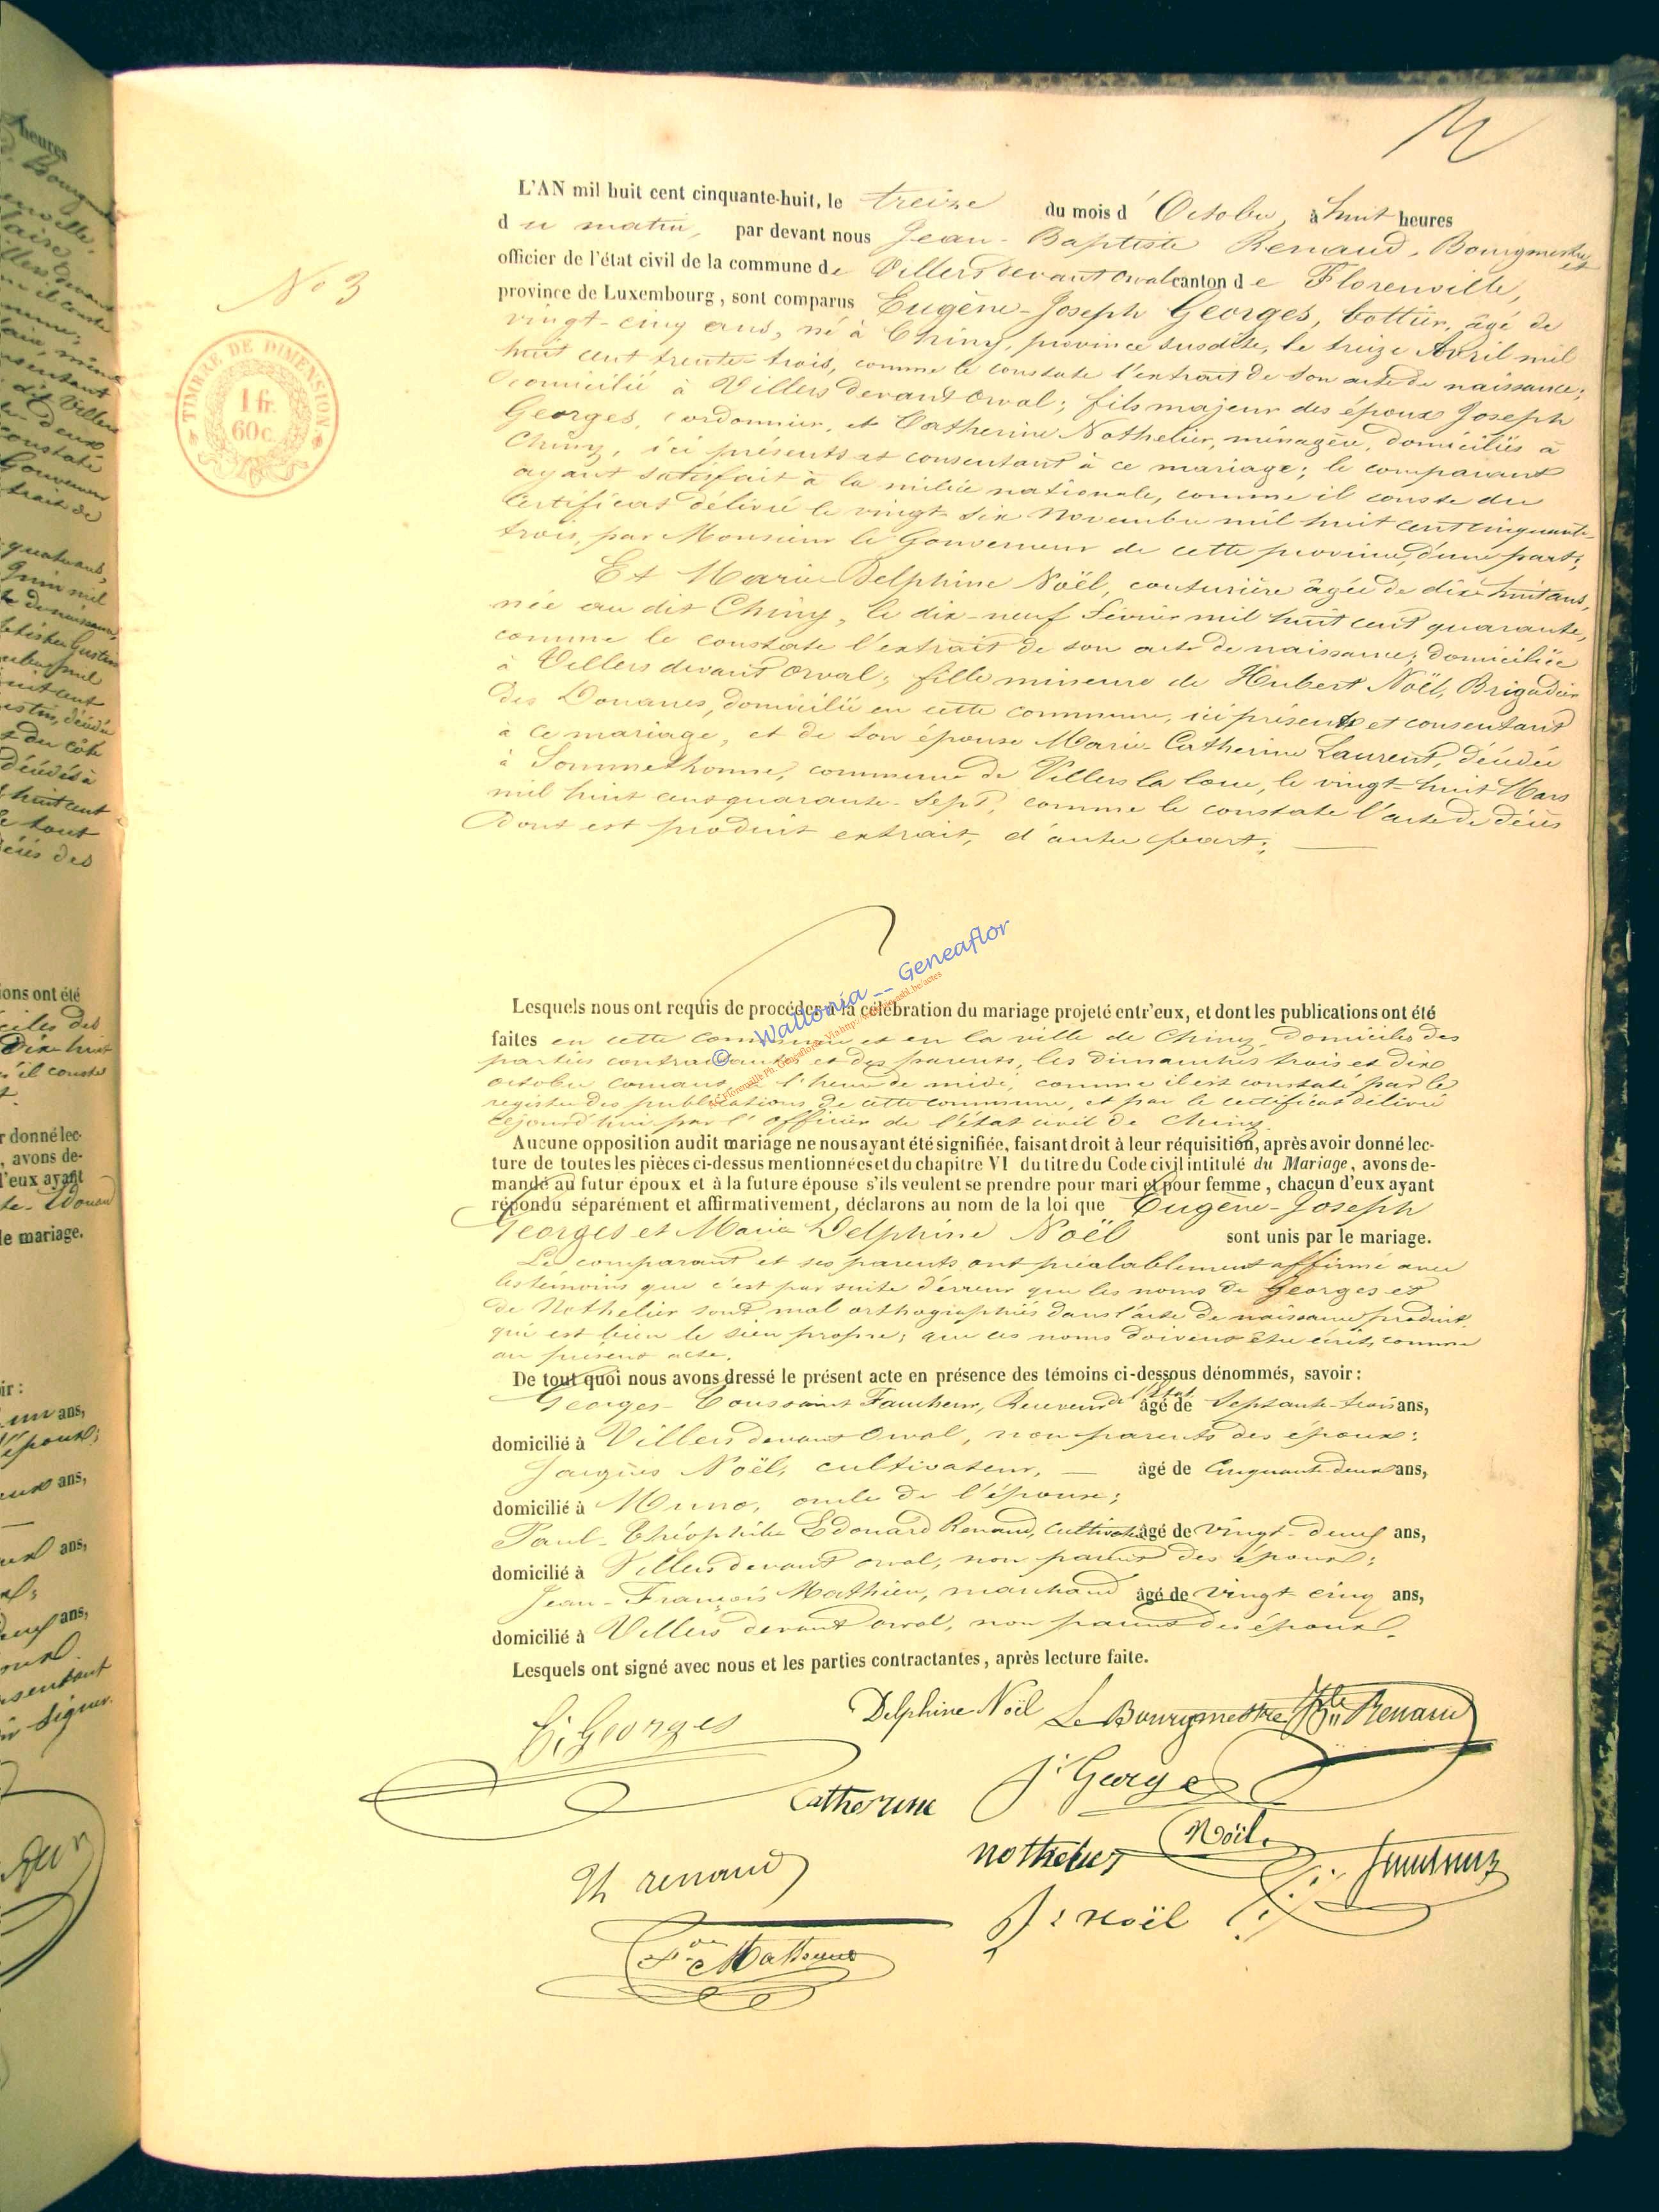 N° 3
TIMBRE DE DIMENSION
1 fr.
60 c.
L'AN mil huit cent cinquante-huit, le treize du mois d'Octobre, à huit heures
du matin, par devant nous Jean-Baptiste Renaud, Bourgmestre et
officier de l'état civil de la commune de Villers devant Orval canton de Florenville,
province de Luxembourg, sont comparus Eugène-Joseph Georges, bottier, âgé de
vingt-cinq ans, né à Chiny, province susdite, le treize Avril mil
huit cent trente-trois, comme le constate l'extrait de son acte de naissance;
domicilié à Villers devant Orval; fils majeur des époux Joseph
Georges, cordonnier, et Catherine Nothelier, ménagère, domiciliés à
Chiny, ici présents et consentant à ce mariage; le comparant
ayant satisfait à la milice nationale, comme il conste du
certificat délivré le vingt six Novembre mil huit cent cinquante-
trois, par Monsieur le Gouverneur de cette province, d'une part;
Et Marie Delphine Noël, couturière âgée de dix huit ans,
née au dit Chiny, le dix-neuf Février mil huit cent quarante,
comme le constate l'extrait de son acte de naissance; domiciliée
à Villers devant Orval; fille mineure de Hubert Noël, Brigadier
des Douanes, domicilié en cette commune, ici présent et consentant
à ce mariage, et de son épouse Marie-Catherine Laurent, décédée
à Sommethonne, commune de Villers la loue, le vingt-huit Mars
mil huit cent quarante-sept, comme le constate l'acte de décès
dont est produit extrait, d'autre part;
© Wallonia -- Geneaflor
Lesquels nous ont requis de procéder à la célébration du mariage projeté entr'eux, et dont les publications ont été
faites en cette commune et en la ville de Chiny, domiciles des
parties contractantes et des parents, les dimanches trois et dix
octobre courant, l'heure de midi, comme il est constaté par le
registre des publications de cette commune, et par le certificat délivré
cejourd'hui par l'officier de l'état civil de Chiny.
Aucune opposition audit mariage ne nous ayant été signifiée, faisant droit à leur réquisition, après avoir donné lec-
ture de toutes les pièces ci-dessus mentionnées et du chapitre VI du titre du Code civil intitulé du Mariage, avons de-
mandé au futur époux et à la future épouse s'ils veulent se prendre pour mari et pour femme, chacun d'eux ayant
répondu séparément et affirmativement, déclarons au nom de la loi que Eugène-Joseph
Georges et Marie Delphine Noël sont unis par le mariage.
Le comparant et ses parents ont préalablement affirmé avec
les témoins que c'est par suite d'erreur que les noms de Georges et
de Nothelier sont mal orthographiés dans l'acte de naissance produit
qui est bien le sien propre; que ces noms doivent être écrits comme
au présent acte.
De tout quoi nous avons dressé le présent acte en présence des témoins ci-dessous dénommés, savoir:
Georges-Toussaint Faucheur, Receveur de l'état âgé de Septante-trois ans,
domicilié à Villers devant Orval, non parents des époux;
Jacques Noël, cultivateur, — âgé de Cinquante-deux ans,
domicilié à Muno, oncle de l'épouse;
Paul-Théophile Edouard Renaud, cultivateur âgé de Vingt-deux ans,
domicilié à Villers devant Orval, non parent des époux;
Jean-François Mathieu, marchand âgé de vingt cinq ans,
domicilié à Villers devant Orval, non parent des époux.
Lesquels ont signé avec nous et les parties contractantes, après lecture faite.
E. Georges
Delphine Noël
Le Bourgmestre JBte Renaud
J. Georges
Catherine
nothelier
Noël
Th renaud
J: Noël